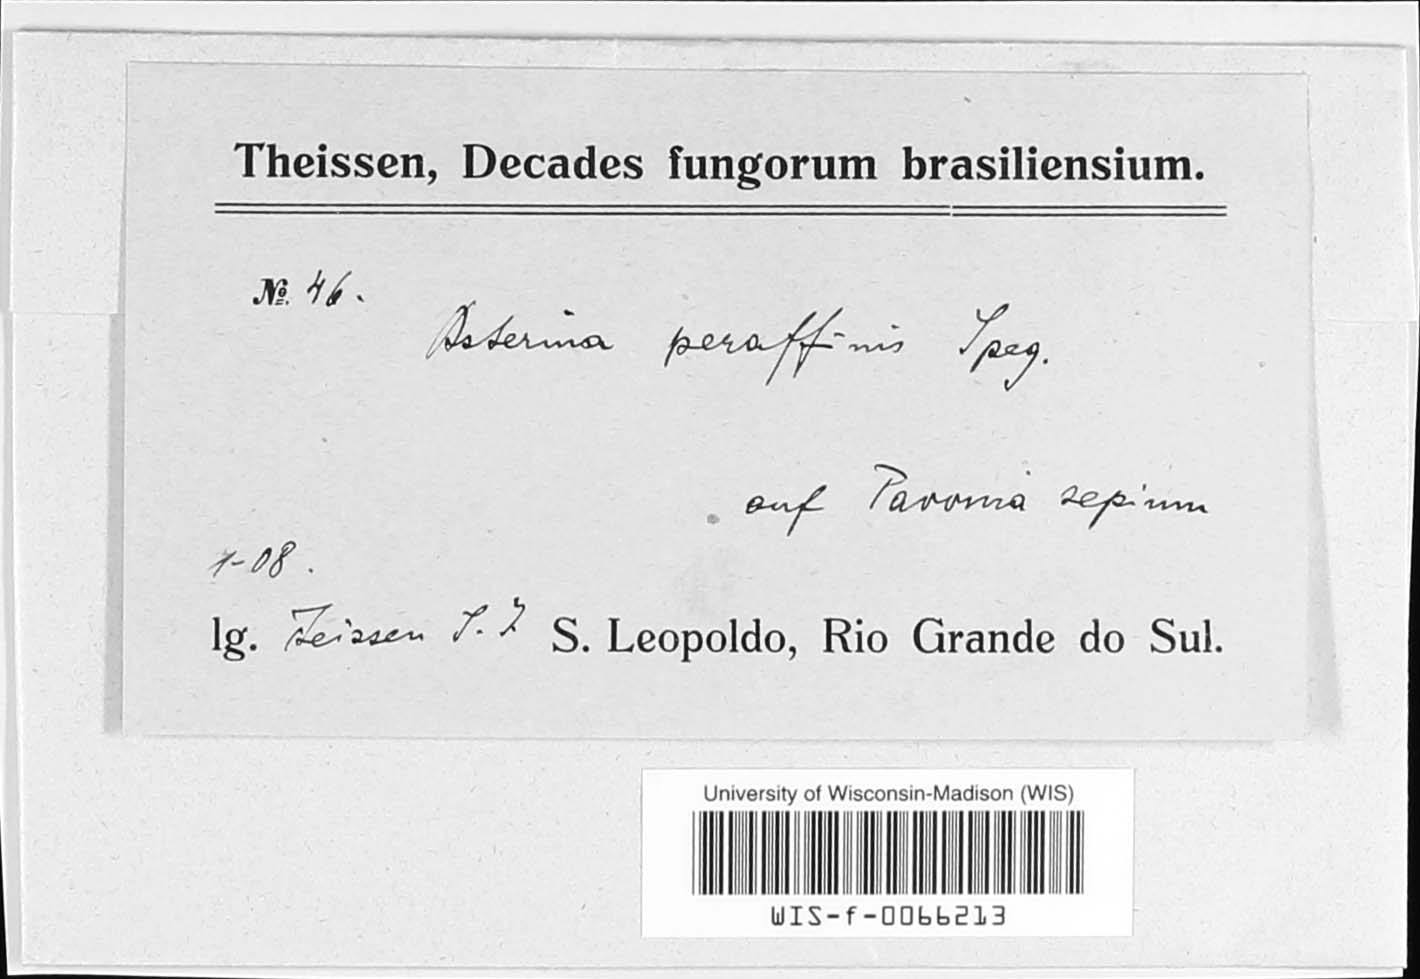 Theissen, Decades fungorum brasiliensium.
No. 46.
Asterina peraffinis Speg.
auf Pavonia sepium
1-08.
lg. Theissen S. J S. Leopoldo, Rio Grande do Sul.
University of Wisconsin-Madison (WIS)
WIS-f-0066213